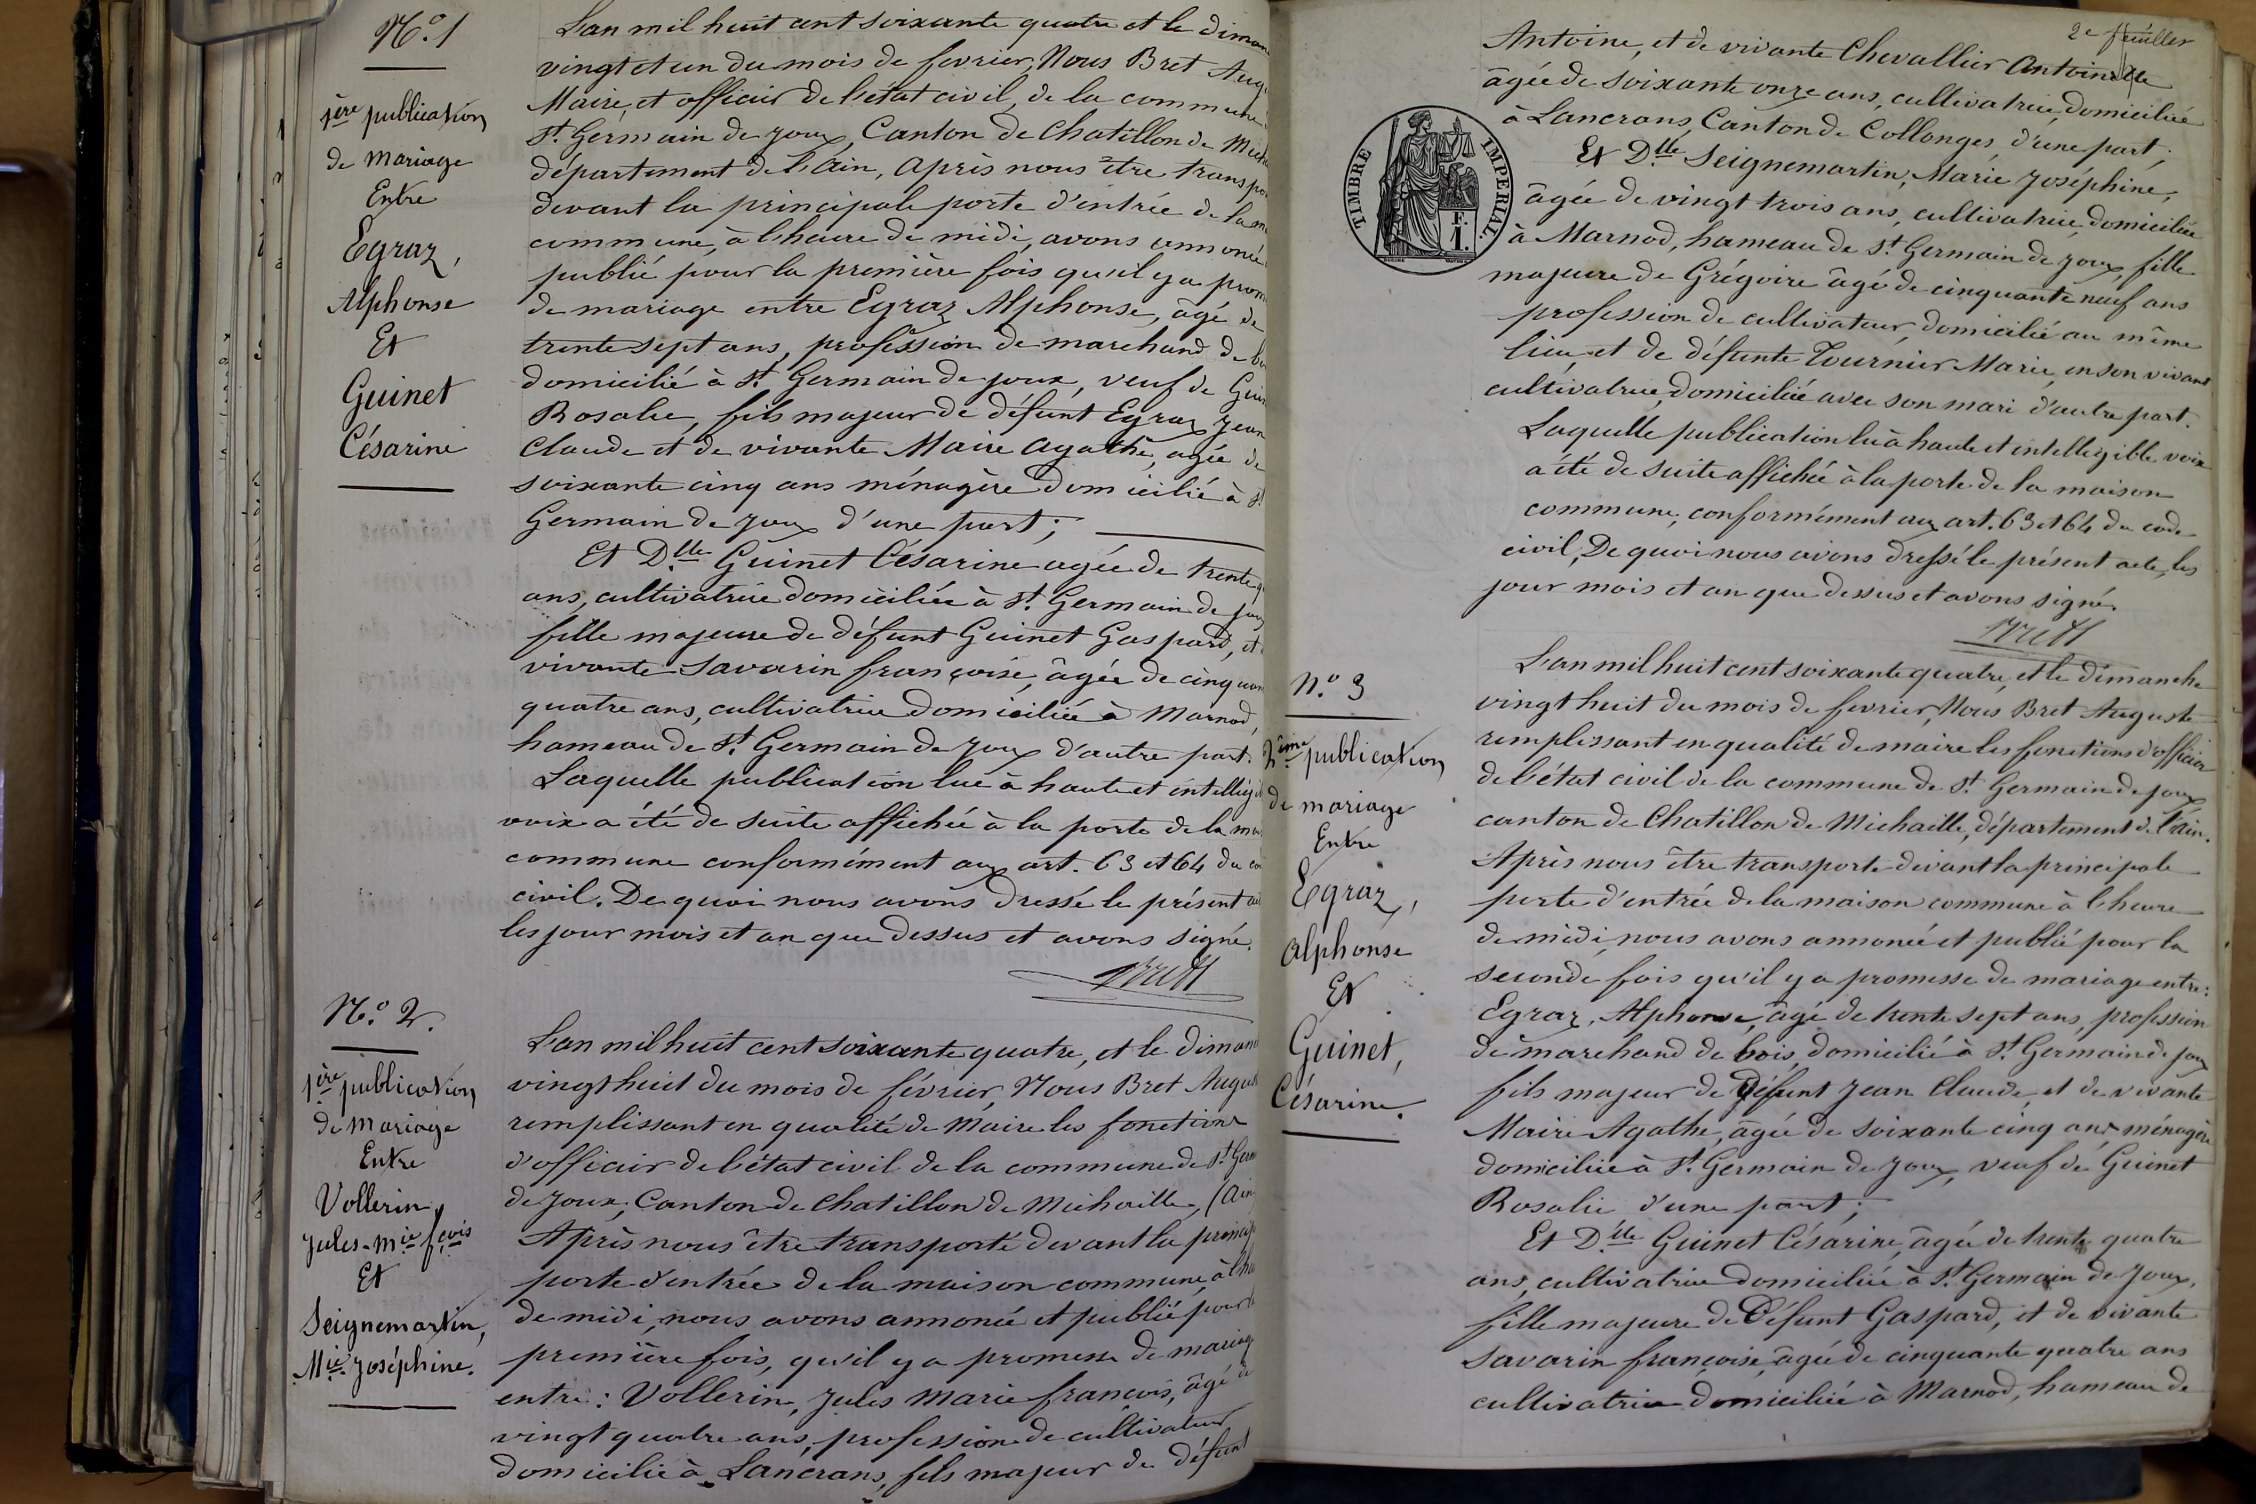 N.o 1
1ère publication
de mariage
Entre
Egraz,
Alphonse
Et
Guinet
Césarine
L'an mil huit cent soixante quatre et le diman
vingt et un du mois de fevrier, Nous Bret Aug
Maire, et officier de l'état civil, de la commune
St. Germain de Joux, Canton de Chatillon de Mich
département de l'Ain, Après nous être transpor
devant la principale porte d'entrée de la m
commune, à l'heure de midi, avons annoncé
publié pour la première fois qu'il y a prom
de mariage entre Egraz Alphonse, âgé de
trente sept ans, profession de marchand de bo
domicilié à St. Germain de Joux, veuf de Guin
Rosalie, fils majeur de défunt Egraz Jean
Claude et de vivante Maire Agathe, agée de
soixante cinq ans ménagère domicilié à St
Germain de Joux d'une part;
Et D.lle Guinet Césarine agée de trente q
ans, cultivatrice domiciliée à St. Germain de Joux
fille majeure de défunt Guinet Gaspard, et
vivante Savarin françoise, âgée de cinquan
quatre ans, cultivatrice domiciliée à Marnod,
hameau de St. Germain de Joux d'autre part.
Laquelle publication lue à haute et intelligi
voix a été de suite affichée à la porte de la mai
commune conformément aux art. 63 et 64 du co
civil. De quoi nous avons dressé le présent ac
les jour mois et an que dessus et avons signé.
Bret
N.o 2.
1ère publication
de mariage
Entre
Vollerin,
Jules-Mie fçois
Et
Seignemartin,
Mie Joséphine.
L'an mil huit cent soixante quatre, et le diman
vingt huit du mois de février, Nous Bret August
remplissant en qualité de Maire les fonctions
d'officier de l'état civil de la commune de St. Germ
de Joux, Canton de Chatillon de Michaille, (Ain
Après nous être transporté devant la princip
porte d'entrée de la maison commune, à l'heu
de midi, nous avons annoncé et publié pour l
première fois, qu'il y a promesse de mariag
entre: Vollerin, Jules Marie françois, âgé de
vingt quatre ans, profession de cultivateur,
domicilié à Lancrans, fils majeur de défunt
2e feuillet
Antoine, et de vivante Chevallier Antoinette
âgée de soixante onze ans, cultivatrice, domiciliée
à Lancrans, Canton de Collonges d'une part;
TIMBRE IMPERIAL
F.
1.
Et D.lle Seignemartin, Marie Joséphine,
âgée de vingt trois ans, cultivatrice, domiciliée
à Marnod, hameau de St. Germain de Joux, fille
majeure de Grégoire âgé de cinquante neuf ans
profession de cultivateur, domicilié au même
lieu, et de défunte Tournier Marie, en son vivant
cultivatrice, domiciliée avec son mari d'autre part.
Laquelle publication lu à haute et intellegible voix
a été de suite affichée à la porte de la maison
commune, conformément aux art. 63 et 64 du code
civil, De quoi nous avons dressé le présent acte, les
jour mois et an que dessus et avons signé.
Bret
N.o 3
2ème publication
de mariage
Entre
Egraz,
Alphonse
Et
Guinet,
Césarine.
L'an mil huit cent soixante quatre, et le dimanche
vingt huit du mois de fevrier, Nous Bret Auguste
remplissant en qualité de maire les fonctions d'officier
de l'état civil de la commune de St. Germain de Joux
canton de Chatillon de Michaille, département de l'Ain.
Après nous être transporté devant la principale
porte d'entrée de la maison commune à l'heure
de midi, nous avons annoncé et publié pour la
seconde fois qu'il y a promesse de mariage entre:
Egraz, Alphonse, âgé de trente sept ans, profession
de marchand de bois, domicilié à St. Germain de Joux
fils majeur de défunt Jean Claude, et de vivante
Maire Agathe, âgée de soixante cinq ans ménagère
domiciliée à St. Germain de Joux, veuf de Guinet
Rosalie d'une part;
Et D.lle Guinet Césarine, âgée de trente quatre
ans, cultivatrice domiciliée à St. Germain de Joux,
fille majeure de Défunt Gaspard, et de vivante
Savarin françoise, âgée de cinquante quatre ans
cultivatrice domiciliée à Marnod, hameau de